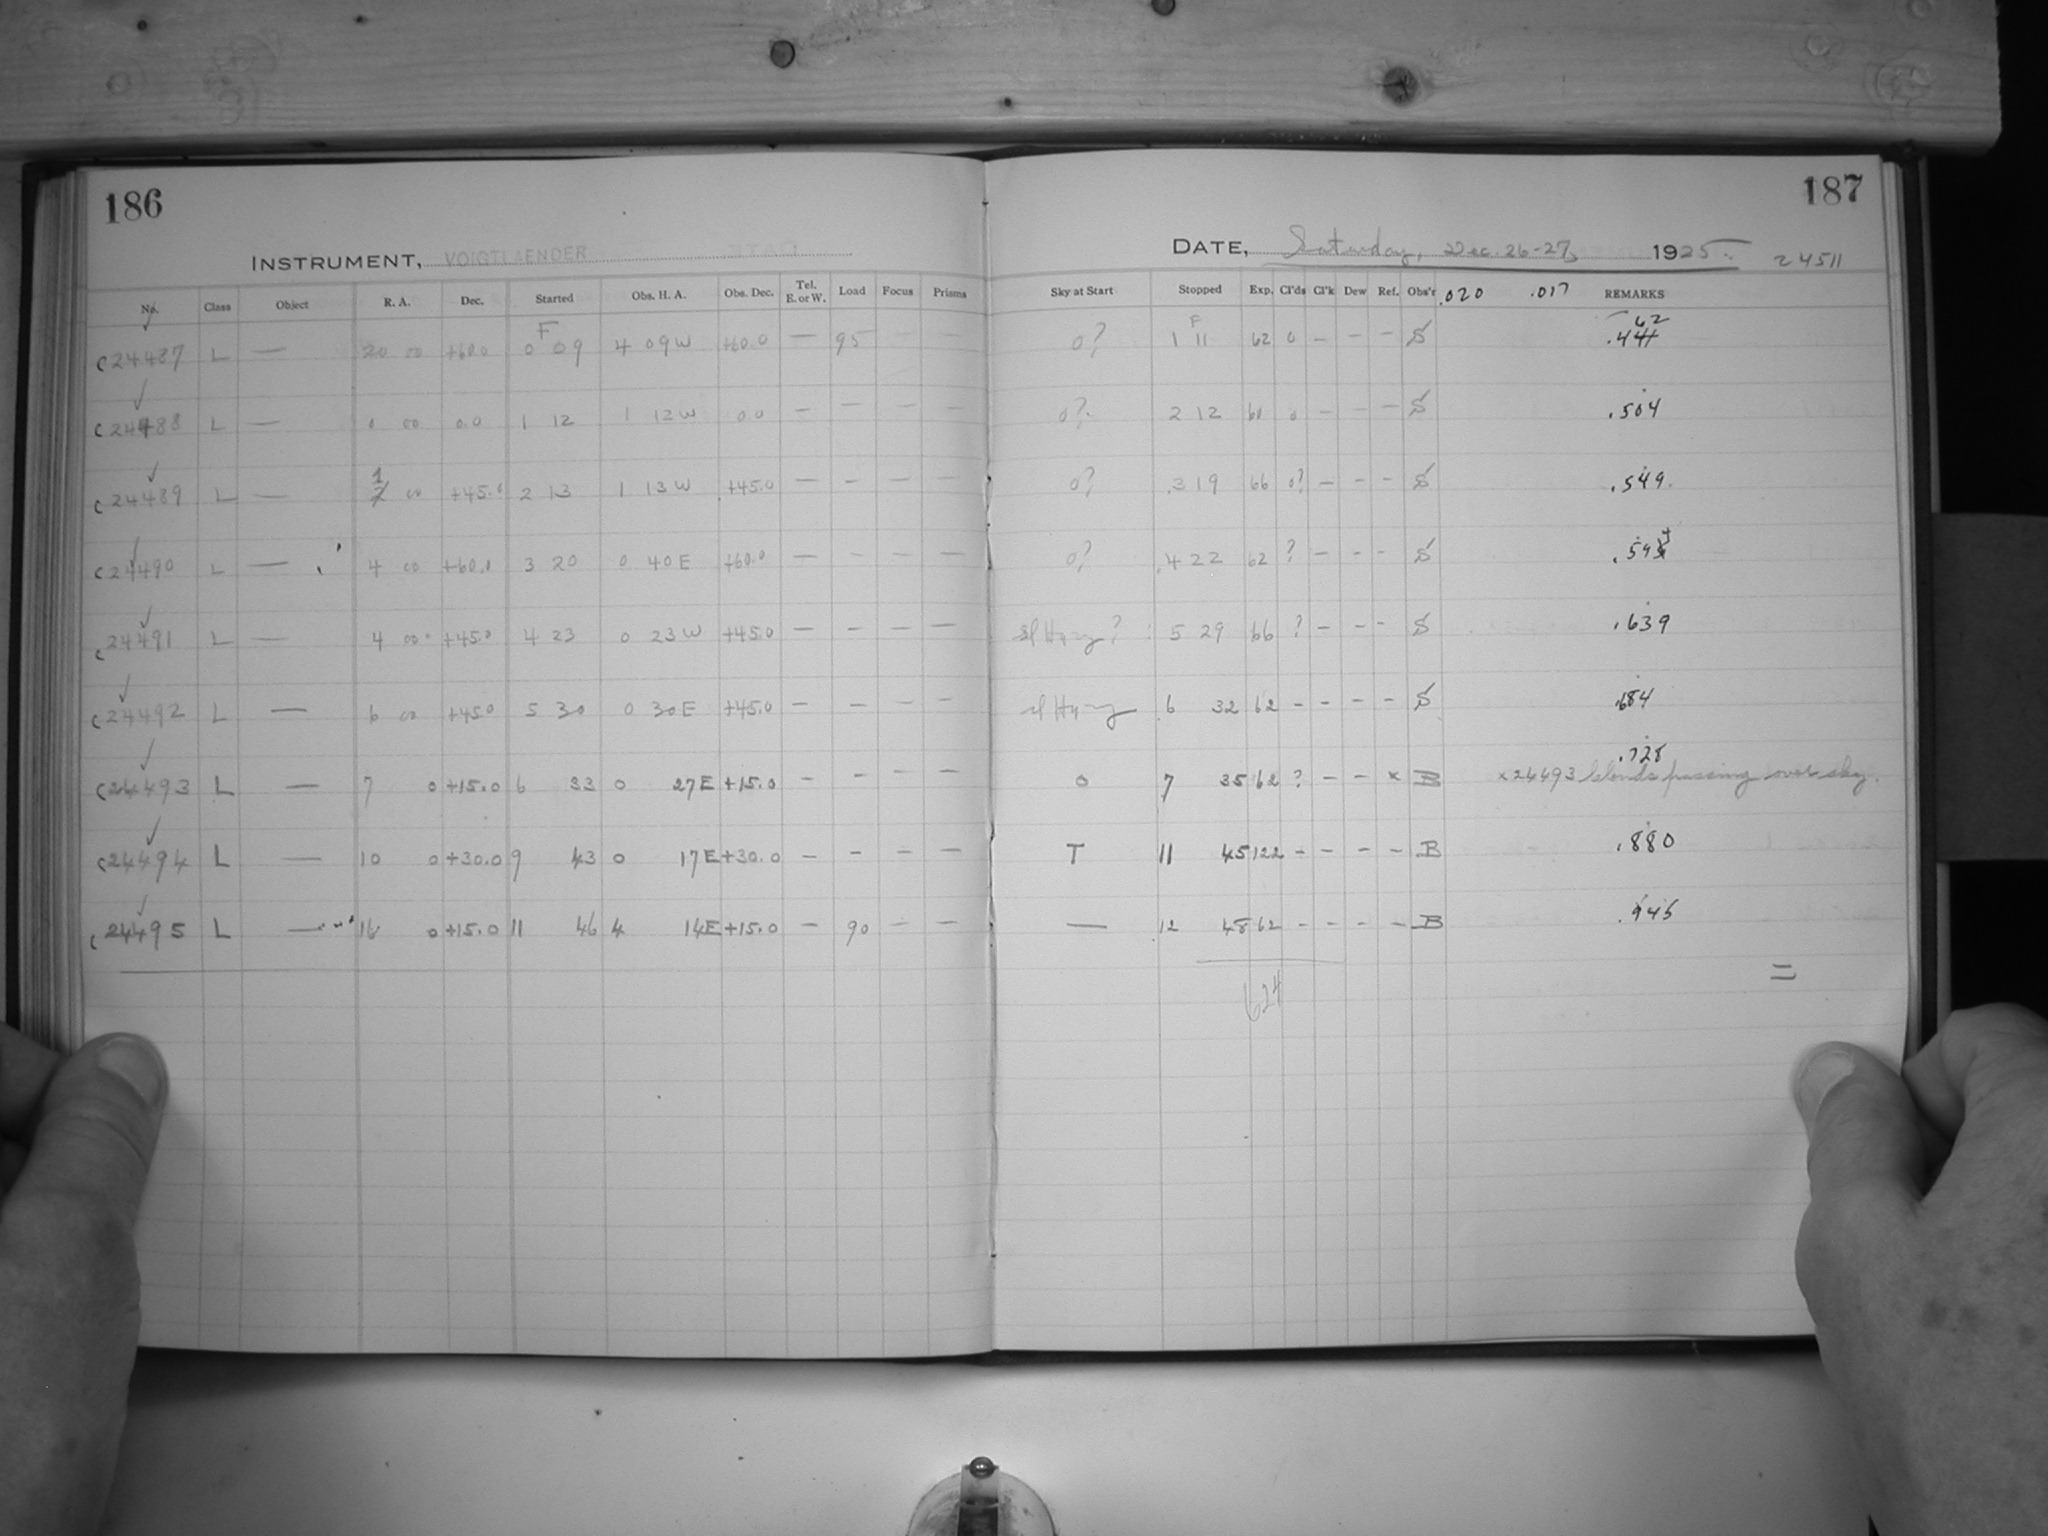 186
187
INSTRUMENT, VOIGTLAENDER
DATE, Saturday, Dec. 26-27, 1925. 24511
No. Class Object R. A. Dec. Started Obs. H. A. Obs. Dec. Tel. E. or W. Load Focus Prisms Sky at Start Stopped Exp. Cl'ds Cl'k Dew Ref. Obs'r .020 .017 REMARKS
F F 62
C24487 L — 20 00 +60.0 0 09 4 09W +60.0 — 95 — — 0? 1 11 62 0 – – – S .441
C24488 L — 0 00 0.0 1 12 1 12W 0.0 — — — — 0? 2 12 60 0 – – – S .504
C24489 L — 1 00 +45.0 2 13 1 13W +45.0 — — — — 0? 3 19 66 0? – – – S .549
C24490 L — 4 00 +60.0 3 20 0 40E +60.0 — – — — 0? 4 22 62 ? – – – S .594
C24491 L — 4 00 +45.0 4 23 0 23W +45.0 — – — — sl Hazy? 5 29 66 ? – – – S .639
C24492 L — 6 00 +45.0 5 30 0 30E +45.0 – – — – sl Hazy 6 32 62 – – – – S .684
C24493 L — 7 0 +15.0 6 33 0 27E +15.0 – – – – 0 7 35 62 ? – – x B .728
x24493 clouds passing over sky.
C24494 L — 10 0 +30.0 9 43 0 17E +30.0 – – – – T 11 45 122 – – – – B .880
C24495 L — 16 0 +15.0 11 46 4 14E +15.0 – 90 – – — 12 48 62 – – – – B .945
624